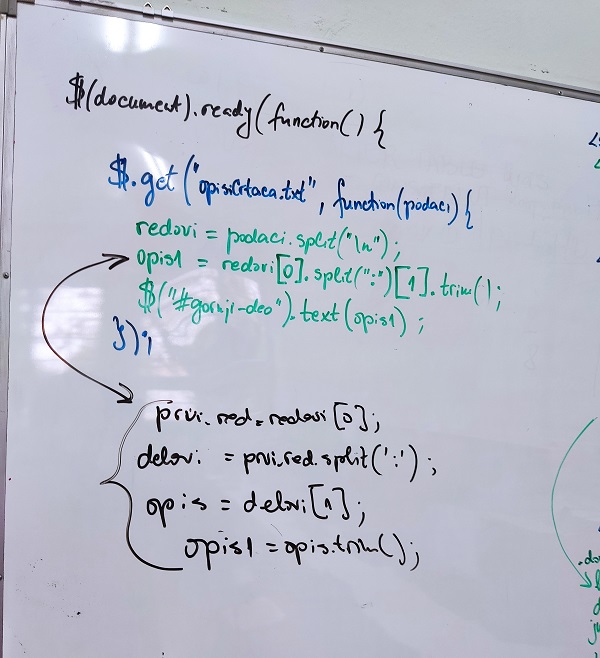 $(document).ready(function() {
$.get("opisiCrtaca.txt", function(podaci) {
redovi = podaci.split("\n");
opis1 = redovi[0].split(":")[1].trim();
$("#gornji-deo").text(opis1);
});
prvi_red=redovi[0];
delovi = prvi_red.split(':');
opis = delovi[1];
opis1 = opis.trim();